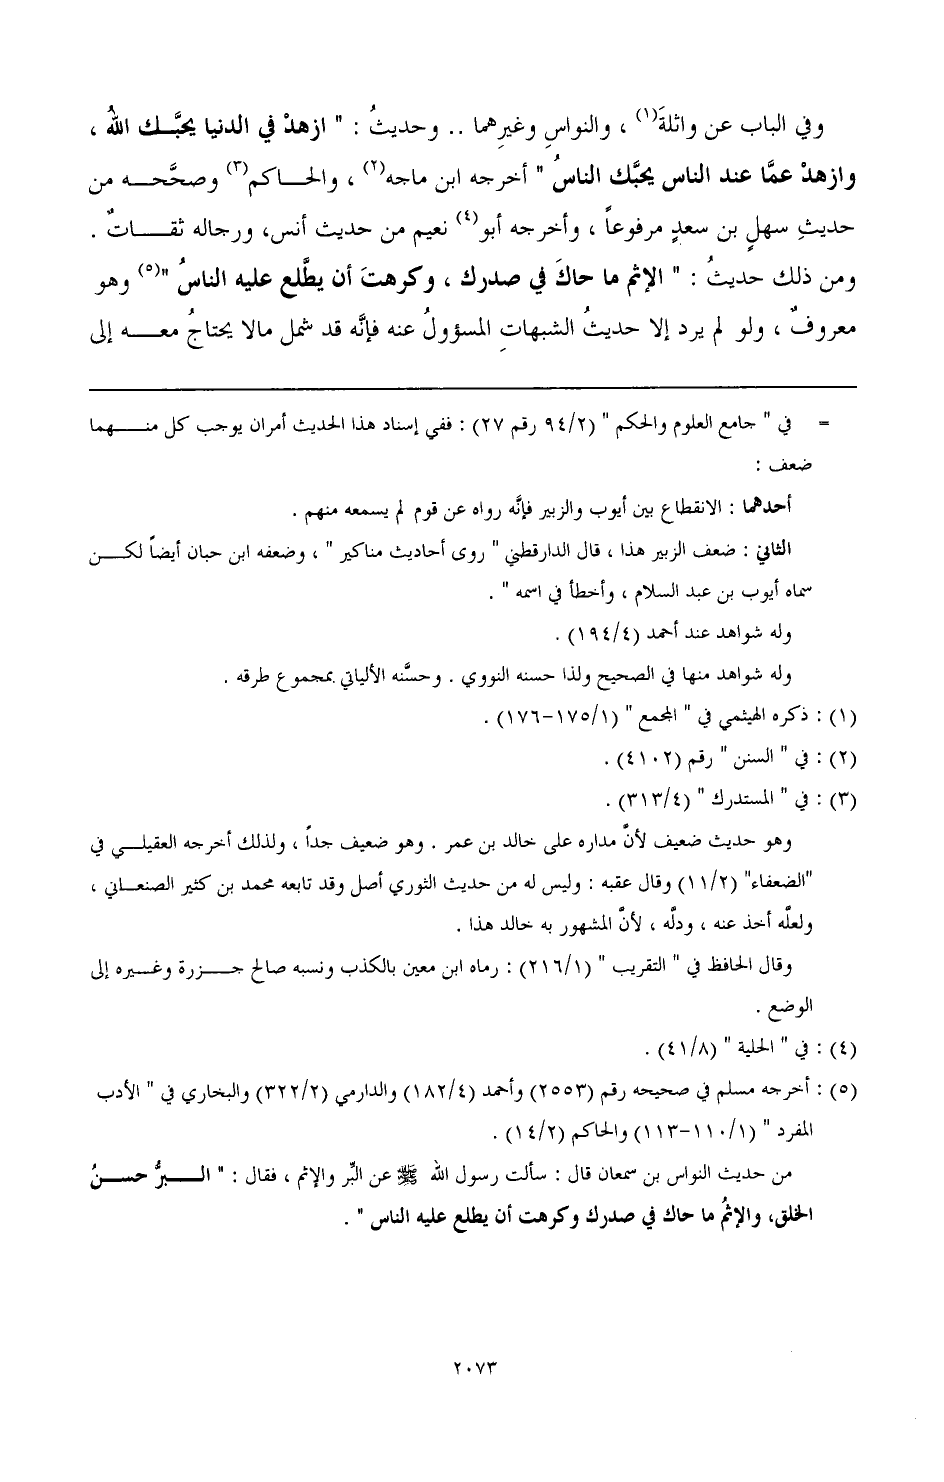 وفي الباب عن واثلةَ(١) ، والنواسِ وغيرِهما .. وحديثُ : " ازهدْ في الدنيا يحبَّـك اللهُ ،
وازهدْ عمَّا عند الناس يحبَّك الناسُ " أخرجه ابن ماجه(٢) ، والحـاكم(٣) وصحَّحـه من
حديثِ سهلٍ بن سعدٍ مرفوعاً ، وأخرجه أبو(٤) نعيم من حديث أنس، ورجاله ثقـاتٌ .
ومن ذلك حديثُ : " الإثم ما حاكَ في صدرك ، وكرهتَ أن يطَّلع عليه الناسُ "(٥) وهو
معروفٌ ، ولو لم يرد إلا حديثُ الشبهاتِ المسؤولُ عنه فإنَّه قد شمل مالا يحتاجُ معـه إلى
= في " جامع العلوم والحكم " (٩٤/٢ رقم ٢٧) : ففي إسناد هذا الحديث أمران يوجب كل منـهما
ضعف :
أحدهما : الانقطاع بين أيوب والزبير فإنَّه رواه عن قوم لم يسمعه منهم .
الثاني : ضعف الزبير هذا ، قال الدارقطني " روى أحاديث مناكير " ، وضعفه ابن حبان أيضاً لكـن
سماه أيوب بن عبد السلام ، وأخطأ في اسمه " .
وله شواهد عند أحمد (١٩٤/٤) .
وله شواهد منها في الصحيح ولذا حسنه النووي . وحسَّنه الألباني بمجموع طرقه .
(١) : ذكره الهيثمي في " المجمع " (١٧٥/١-١٧٦) .
(٢) : في " السنن " رقم (٤١٠٢) .
(٣) : في " المستدرك " (٣١٣/٤) .
وهو حديث ضعيف لأنَّ مداره على خالد بن عمر . وهو ضعيف جداً ، ولذلك أخرجه العقيلـي في
"الضعفاء" (١١/٢) وقال عقبه : وليس له من حديث الثوري أصل وقد تابعه محمد بن كثير الصنعـاني ،
ولعلَّه أخذ عنه ، ودلَّه ، لأنَّ المشهور به خالد هذا .
وقال الحافظ في " التقريب " (٢١٦/١) : رماه ابن معين بالكذب ونسبه صالح جـزرة وغـيره إلى
الوضع .
(٤) : في " الحلية " (٤١/٨) .
(٥) : أخرجه مسلم في صحيحه رقم (٢٥٥٣) وأحمد (١٨٢/٤) والدارمي (٣٢٢/٢) والبخاري في " الأدب
المفرد " (١١٠/١-١١٣) والحاكم (١٤/٢) .
من حديث النواس بن سمعان قال : سألت رسول الله ﷺ عن البِّر والإثم ، فقال : " الـبرُّ حسـنُ
الخلق، والإثمُ ما حاك في صدرك وكرهت أن يطلع عليه الناس " .
٢٠٧٣